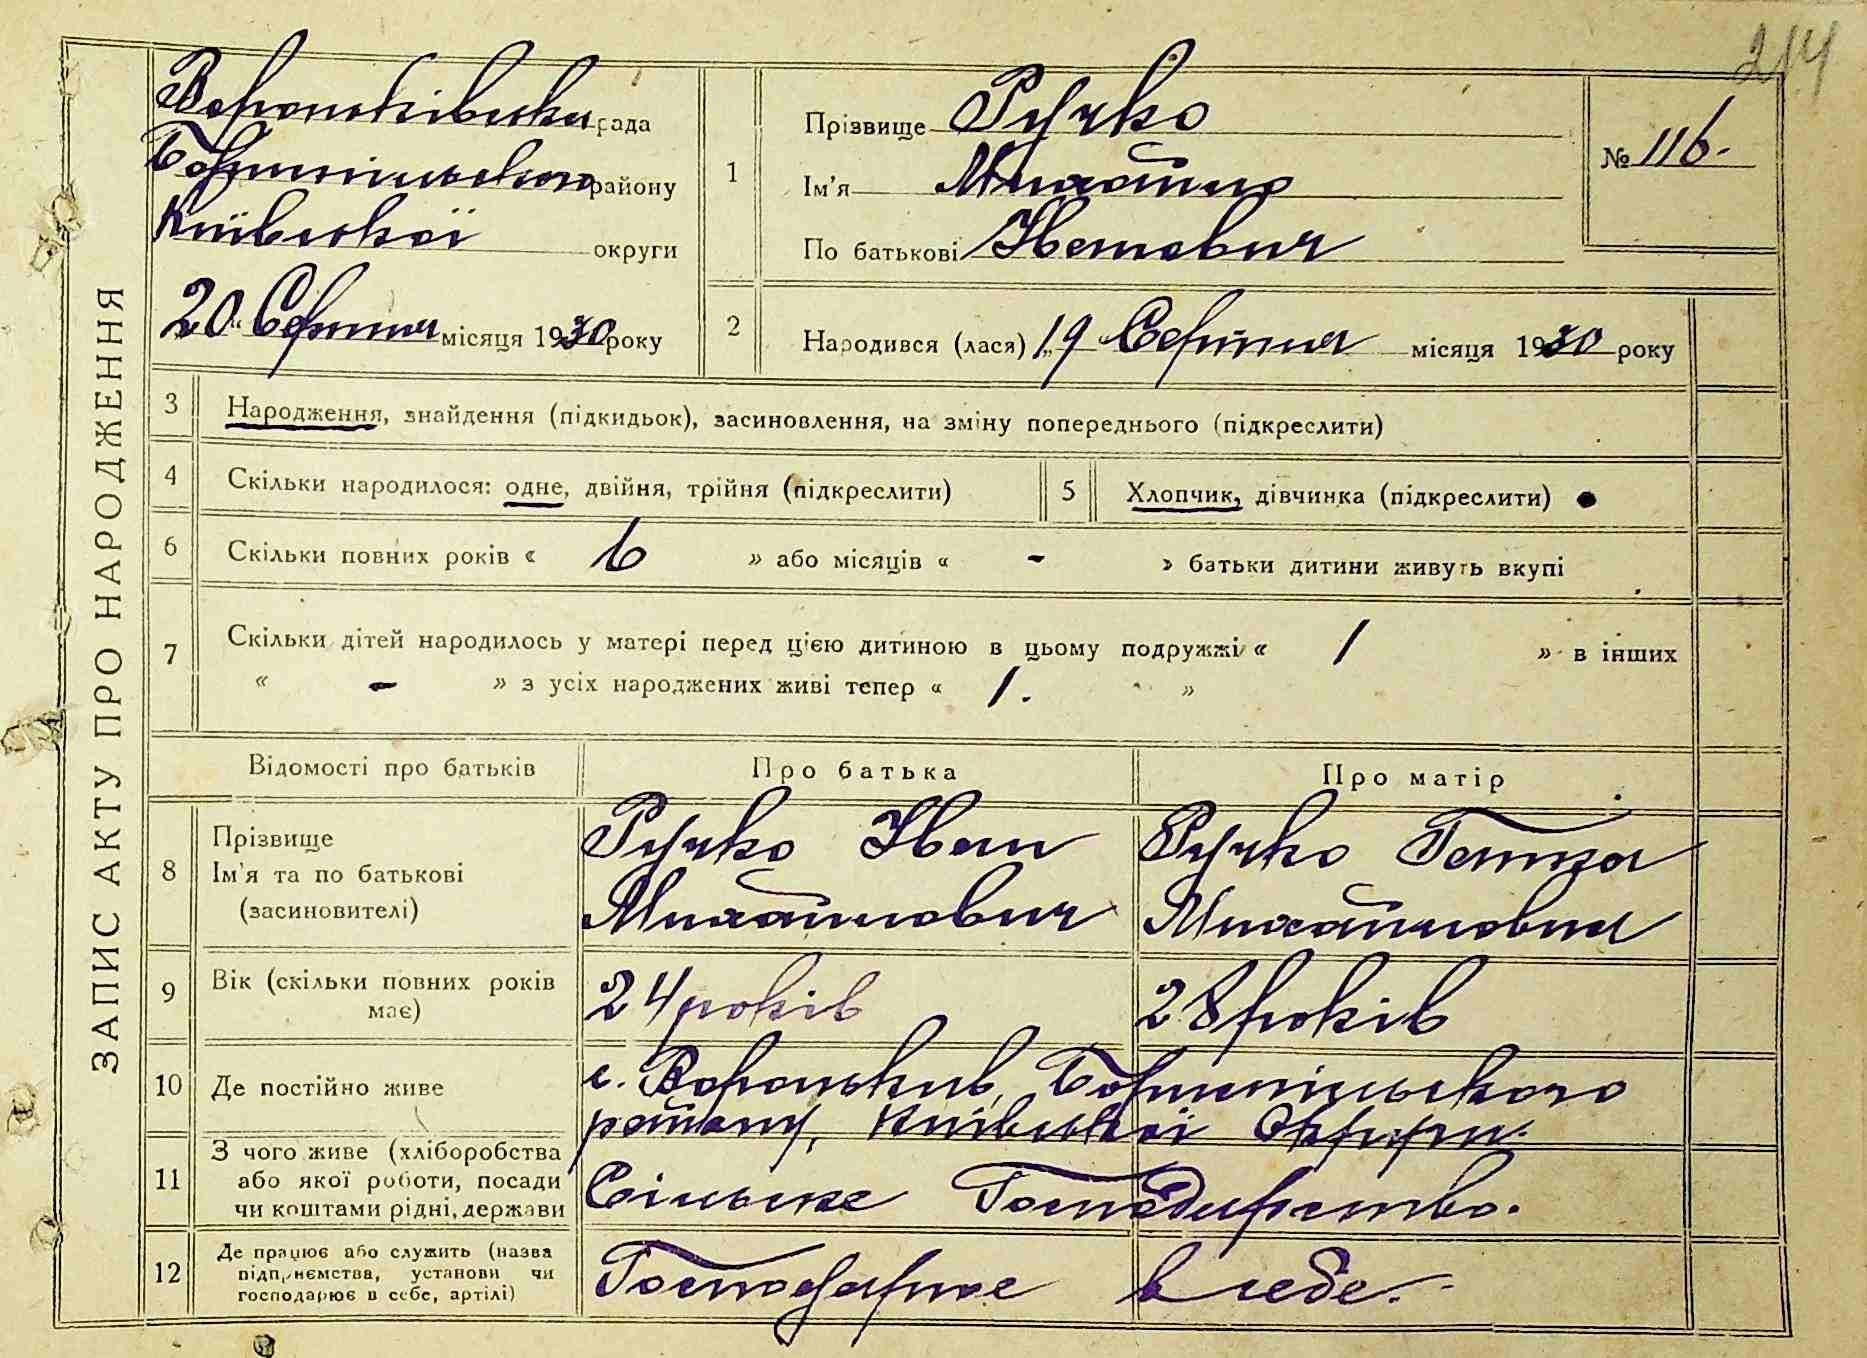 214
ЗАПИС АКТУ ПРО НАРОДЖЕННЯ
Вороньківська рада
Бориспільського району
Київської округи
20 " Серпня місяця 1930 року
1
Прізвище Ручко
Ім'я Михайло
По батькові Іванович
№ 116.
2
Народився (лася) „19 Серпня місяця 1930 року
3 Народження, знайдення (підкидьок), засиновлення, на зміну попереднього (підкреслити)
4 Скільки народилося: одне, двійня, трійня (підкреслити)
5 Хлопчик, дівчинка (підкреслити)
6 Скільки повних років « 6 » або місяців « - » батьки дитини живуть вкупі
7 Скільки дітей народилось у матері перед цією дитиною в цьому подружжі « 1 » в інших
« - » з усіх народжених живі тепер « 1. »
Відомості про батьків
Про батька
Про матір
8
Прізвище
Ім'я та по батькові
(засиновителі)
Ручко Іван
Михайлович
Ручко Ганна
Михайловна
9
Вік (скільки повних років
має)
24 років
28 років
10 Де постійно живе
с. Вороньків, Бориспільського
району, Київської Округи.
11
З чого живе (хліборобства
або якої роботи, посади
чи коштами рідні, держави
Сільське Господарство.
12
Де працює або служить (назва
підприємства, установи чи
господарює в себе, артілі)
Господарює в себе.